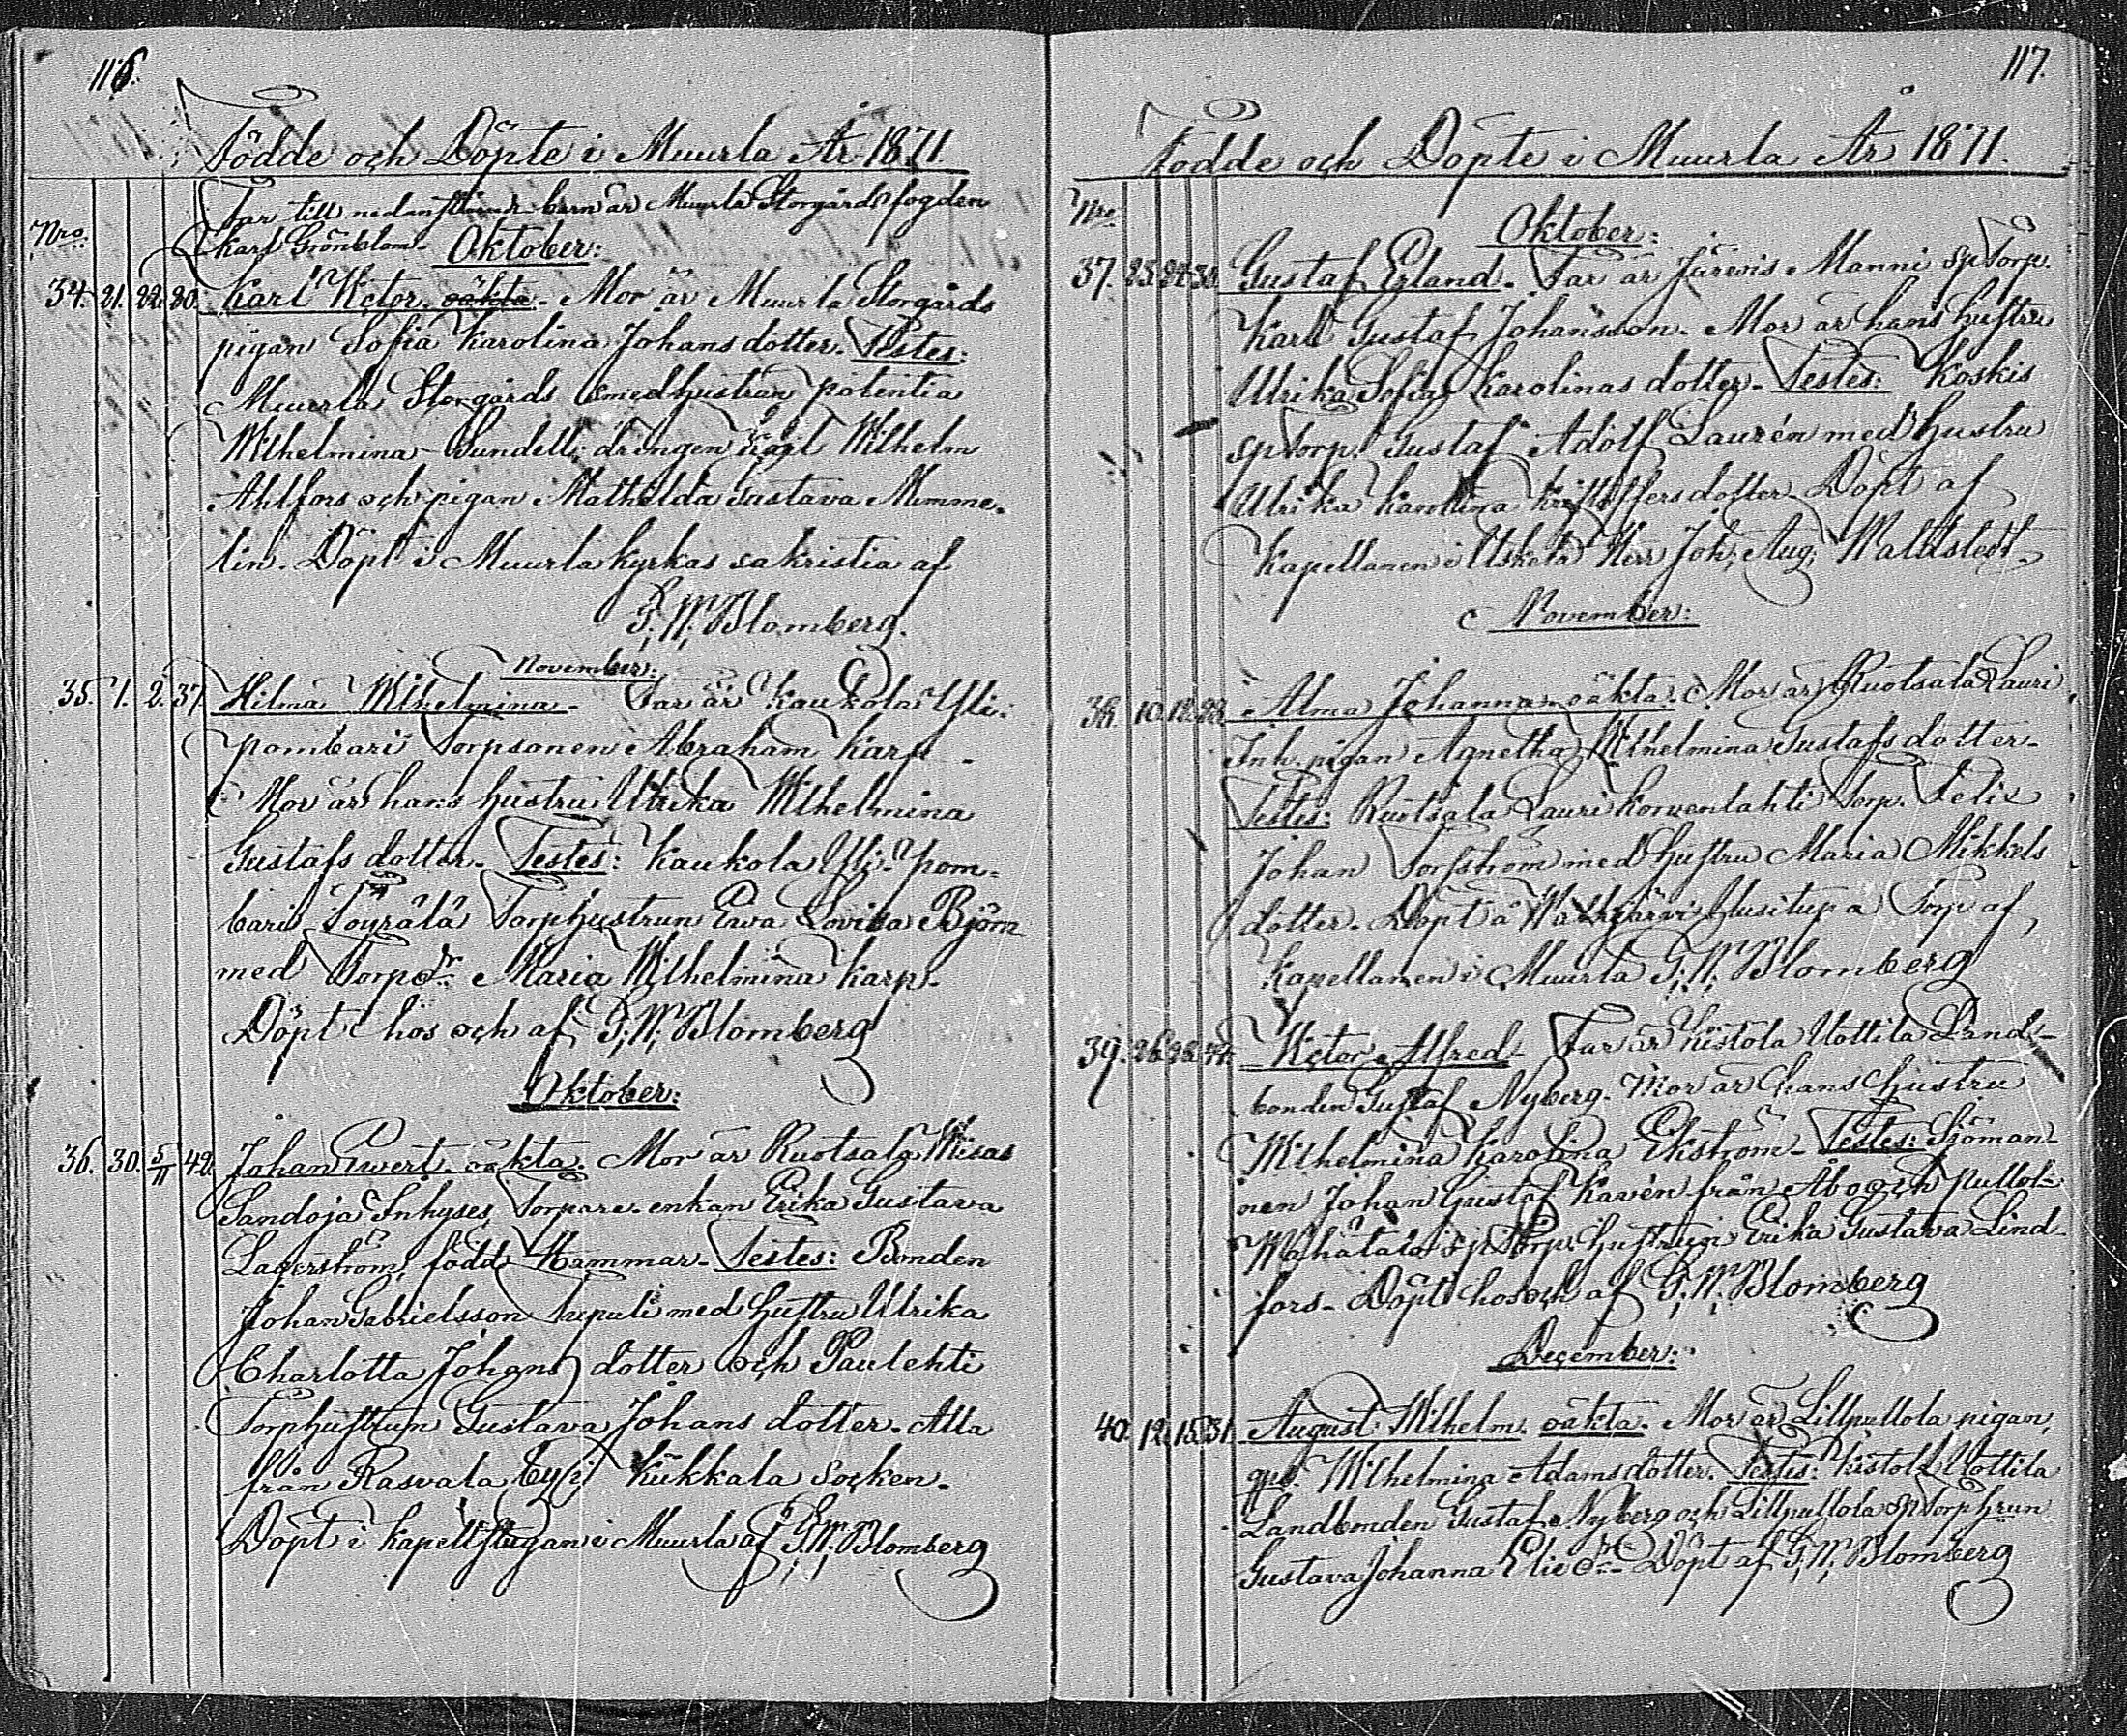 116.
Födde och Döpte i Muurla År 1871.
Far till nedanstående barn är Muurla Storgårds fogden
Nro. Karl Grönblom. Oktober:
34. 21. 22. 20. Karl Victor. oäkta. Mor är Muurla Storgårds
pigan Sofia Karolina Johansdotter. Testes:
Muurla Storgårds smedhustrun Potentia
Wilhelmina Sundell; drengen Karl Wilhelm
Ahlfors och pigan Mathilda Gustava Mimme-
lin. Döpt i Muurla kyrkas sakristia af
G. W. Blomberg.
November:
35. 1. 2. 37. Hilma Wilhelmina. Far är Kaukola Yli-
pombari Torpsonen Abraham Karp.
Mor är hans hustru Ulrika Wilhelmina
Gustafs dotter. Testes: Kaukola Yli-pom-
bari Töyrälä Torphustrun Eava Lovisa Björn
med Torpdr: Maria Wilhelmina Karp.
Döpt hos och af G. W. Blomberg
Oktober:
36. 30. 5/11 42. Johan Ewert. oäkta. Mor är Ruotsala Wisas
Sandoja Inhyses Torpare-enkan Erika Gustava
Lagerström, född Hammar. Testes: Bonden
Johan Gabrielsson med hustru Ulrika
Charlotta Johans dotter och Paulehti
Torphustrun Gustava Johans dotter. Alla
från Rasvala by i Kiikkala Socken.
Döpt i kapellstugan i Muurla af G. W. Blomberg
117.
Födde och Döpte i Muurla År 1871.
Nro. Oktober:
37. 23. 24. 30. Gustaf Erland. Far är Järvis Manni sp Torp.
Karl Gustaf Johansson. Mor är hans hustru
Ulrika Sofia Karolinas dotter. Testes: Koskis
sp Torp. Gustaf Adolf Laurén med hustru
Ulrika Karolina Kristoffersdotter. Döpt af
Kapellanen i Uskela Herr Joh. Aug. Wallstedt.
November:
38. 10. 12. 28. Alma Johanna. oäkta. Mor är Ruotsala Lauri
Inh. pigan Agnetha Wilhelmina Gustafs dotter.
Testes: Ruotsala Lauri Korvenlahti Torp. Felix
Johan Torfström med hustru Maria Mikkels
dotter. Döpt å Uusitupa Torp af
Kapellanen i Muurla G. W. Blomberg
39. 26. 26. 44. Victor Alfred. Far är Kistola Uottila Land-
bonden Gustaf Nyberg. Mor är hans hustru
Wilhelmina Karolina Ekström. Testes: Sjöman-
nen Johan Gustaf Kavén från Åbo och Pullol-
Wähätalo sp Torp. hustrun Erika Gustava Lind-
fors. Döpt hos och af G. W. Blomberg
December:
40. 12. 15. 31. August Wilhelm. oäkta. Mor är Lillpullola pigan,
Wilhelmina Adamsdotter. Testes: Kistola Uottila
Landbonden Gustaf Nyberg och Lillpullola sp Torphrun
Gustava Johanna Elie dr. Döpt af G. W. Blomberg